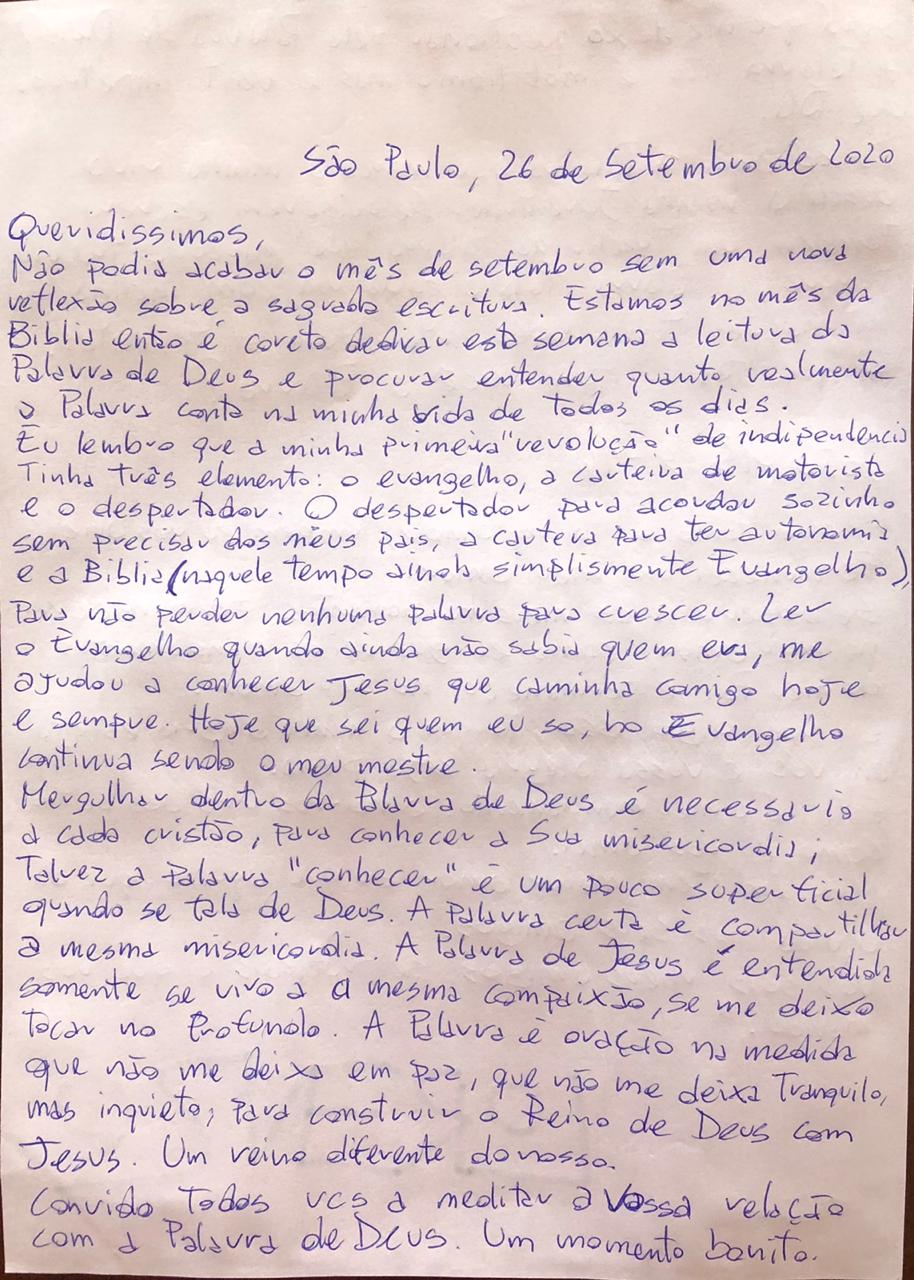 São Paulo, 26 de Setembro de 2020
Queridissimos,
Não podia acabar o mês de setembro sem uma nova
reflexão sobre a sagrada escritura. Estamos no mês da
Biblia então é coreto dedicar esta semana a leitura da
Palavra de Deus e procurar entender quanto realmente
a Palavra conta na minha vida de todos os dias.
Eu lembro que a minha primeira "revolução" de indipendencia
Tinha três elemento: o evangelho, a carteira de motorista
e o despertador. O despertador para acordar sozinho
sem precisar dos meus pais, a cartera para ter autonomia
e a Biblia (naquele tempo ainda simplismente Evangelho),
Para não perder nenhuma palavra para crescer. Ler
o Evangelho quando ainda não sabia quem era, me
ajudou a conhecer Jesus que caminha comigo hoje
e sempre. Hoje que sei quem eu so, ho Evangelho
continua sendo o meu mestre.
Mergulhar dentro da Palavra de Deus é necessario
a cada cristão, para conhecer a Sua misericordia;
Talvez a Palavra "conhecer" é um pouco superficial
quando se fala de Deus. A Palavra certa é compartilhar
a mesma misericordia. A Palavra de Jesus é entendida
somente se vivo a a mesma compaixão, se me deixo
tocar no Profundo. A Palavra é oração na medida
que não me deixa em paz, que não me deixa Tranquilo,
mas inquieto; para construir o Reino de Deus com
Jesus. Um reino diferente do nosso.
Convido Todos vcs a meditar a Vossa relação
com a Palavra de Deus. Um momento bonito.